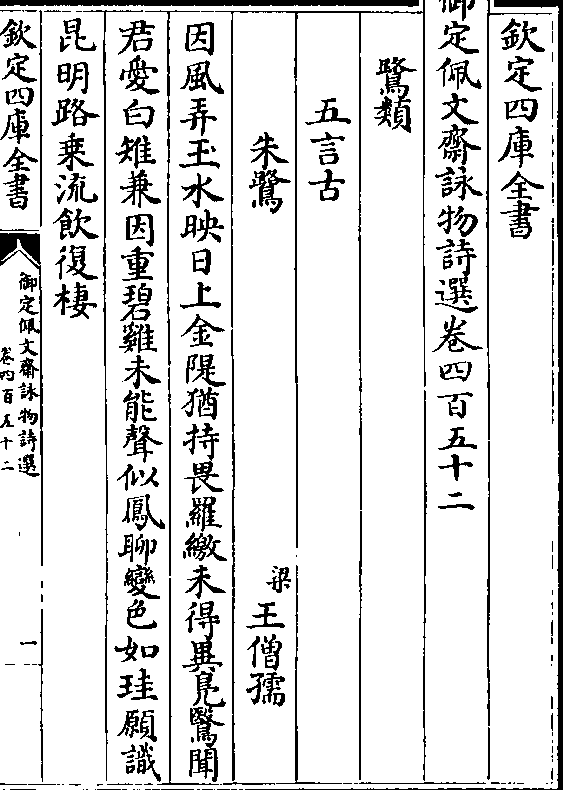 欽定四庫全書
御定佩文齋詠物詩選卷四百五十二
鷺類
五言古
朱鷺 梁王僧孺
因風弄玉水映日上金隄猶持畏羅繳未得異鳧鷖聞
君愛白雉兼因重碧雞未能聲似鳳聊變色如珪願識
昆明路乗流飲復棲
欽定四庫全書
御定佩文齋詠物詩選
卷四百五十二
一